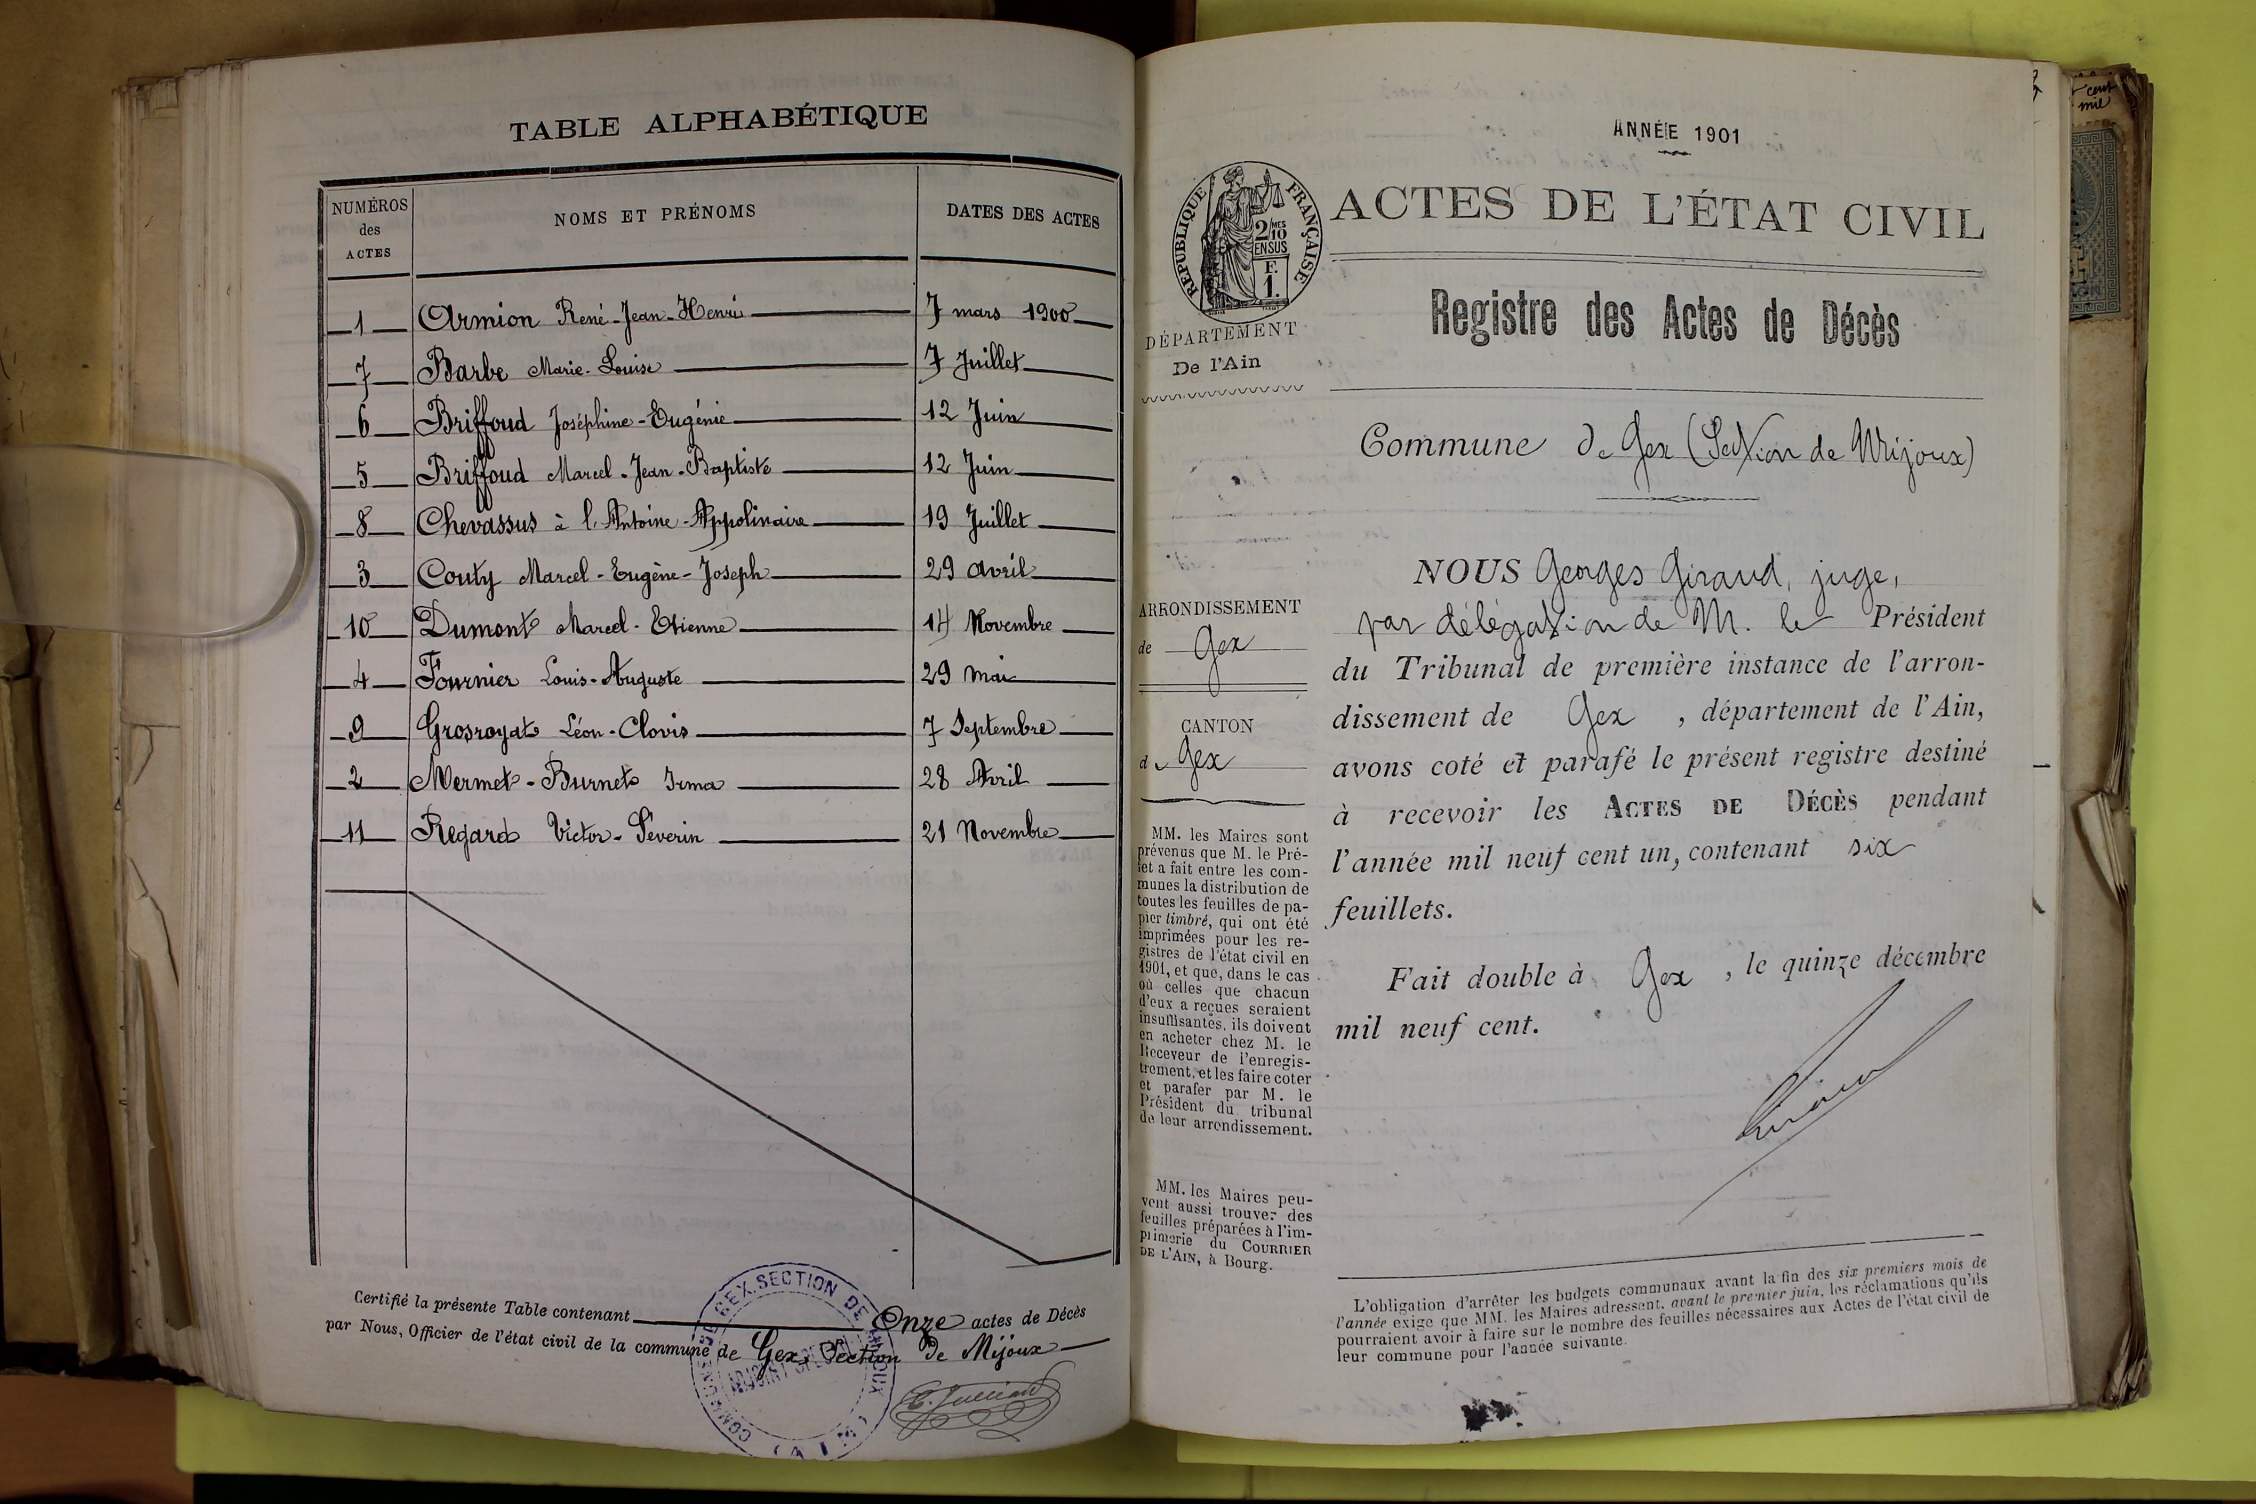 TABLE ALPHABÉTIQUE
NUMÉROS des ACTES NOMS ET PRÉNOMS DATES DES ACTES
1 Armion René-Jean-Henri 7 mars 1900
7 Barbe Marie-Louise 7 Juillet
6 Briffoud Joséphine-Eugénie 12 Juin
5 Briffoud Marcel-Jean-Baptiste 12 Juin
8 Chevassus à l'Antoine-Appolinaire 19 Juillet
3 Couty Marcel-Eugène-Joseph 29 avril
10 Dumont Marcel-Etienne 14 Novembre
4 Fournier Louis-Auguste 29 mai
9 Grosroyat Léon-Clovis 7 Septembre
2 Mermet-Burnet Irma 28 Avril
11 Regard Victor-Séverin 21 Novembre
Certifié la présente Table contenant Onze actes de Décès
par Nous, Officier de l'état civil de la commune de Gex, Section de Mijoux
ADJOINT SPÉCIAL
ANNÉE 1901
RÉPUBLIQUE FRANÇAISE
2/10 MES
EN SUS
F.
1.
ACTES DE L'ÉTAT CIVIL
DÉPARTEMENT
De l'Ain
Registre des Actes de Décès
Commune de Gex (Section de Mijoux)
ARRONDISSEMENT
de Gex
CANTON
de Gex
MM. les Maires sont
prévenus que M. le Pré-
fet a fait entre les com-
munes la distribution de
toutes les feuilles de pa-
pier timbré, qui ont été
imprimées pour les re-
gistres de l'état civil en
1901, et que, dans le cas
où celles que chacun
d'eux a reçues seraient
insuffisantes, ils doivent
en acheter chez M. le
Receveur de l'enregis-
trement, et les faire coter
et parafer par M. le
Président du tribunal
de leur arrondissement.
MM. les Maires peu-
vent aussi trouver des
feuilles préparées à l'im-
primerie du COURRIER
DE L'AIN, à Bourg.
NOUS Georges Giraud, juge,
par délégation de M. le Président
du Tribunal de première instance de l'arron-
dissement de Gex, département de l'Ain,
avons coté et parafé le présent registre destiné
à recevoir les ACTES DE DÉCÈS pendant
l'année mil neuf cent un, contenant six
feuillets.
Fait double à Gex, le quinze décembre
mil neuf cent.
L'obligation d'arrêter les budgets communaux avant la fin des six premiers mois de
l'année exige que MM. les Maires adressent, avant le premier juin, les réclamations qu'ils
pourraient avoir à faire sur le nombre des feuilles nécessaires aux Actes de l'état civil de
leur commune pour l'année suivante.
cent
mil